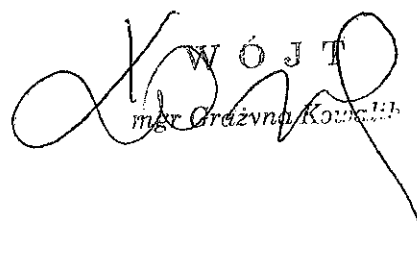 WÓJT
mgr Grażyna Kowalik